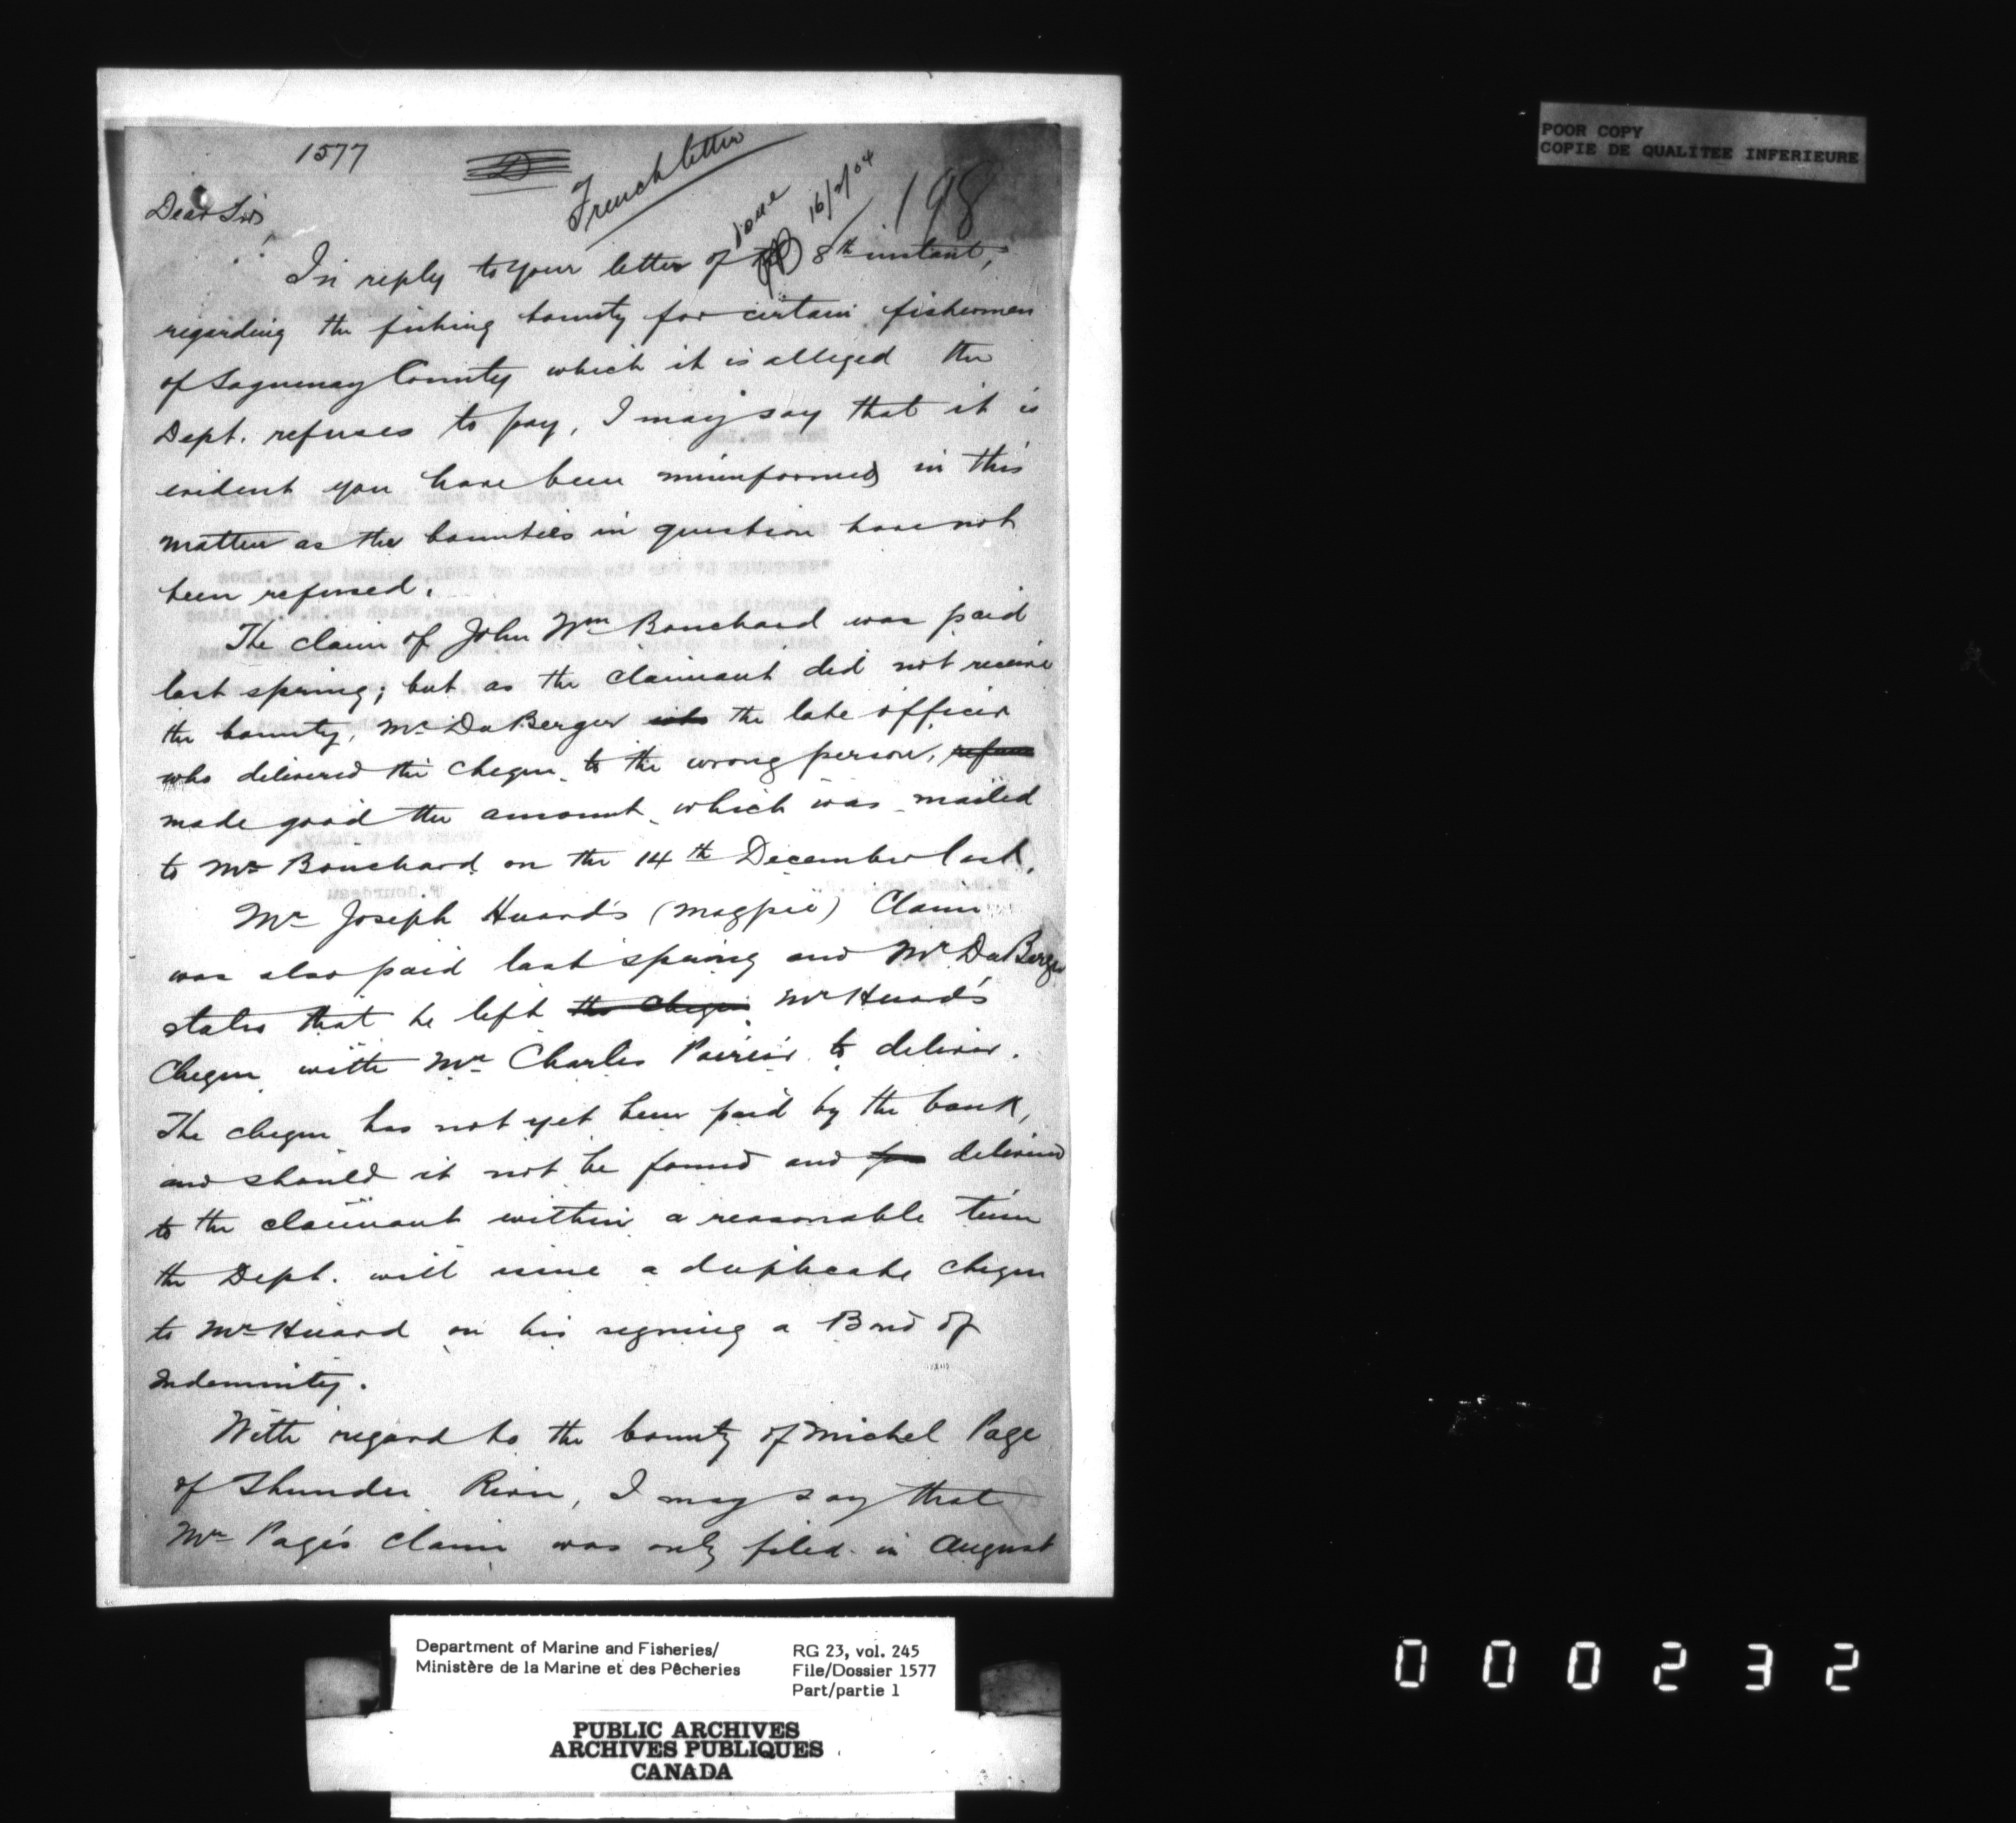 POOR COPY
COPIE DE QUALITEE INFERIEURE
1577
D
French letter
done
16/2/04
198
Dear Sir,
In reply to your letter of the 8th instant,
regarding the fishing bounty for certain fishermen
of Saguenay County which it is alleged the
Dept. refuses to pay, I may say that it is
evident you have been misinformed in this
matter as the bounties in question have not
been refused.
The claim of John Wm Bouchard was paid
last spring; but as the claimant did not receive
the bounty, Mr DuBerger who the late officer
who delivered the cheque to the wrong person,
made good the amount which was mailed
to Mr Bouchard on the 14th December last.
Mr Joseph Huard's (Magpie) Claim
was also paid last spring and Mr DuBerger
states that he left the cheque Mr Huard's
Cheque with Mr Charles Poirier to deliver.
The cheque has not yet been paid by the bank,
and should it not be found and delivered
to the claimant within a reasonable time
the Dept. will issue a duplicate cheque
to Mr Huard on his signing a Bond of
Indemnity.
With regard to the bounty of Michel Page
of Thunder River, I may say that
Mr Page's claim was only filed in August
Department of Marine and Fisheries/
Ministère de la Marine et des Pêcheries
RG 23, vol. 245
File/Dossier 1577
Part/partie 1
PUBLIC ARCHIVES
ARCHIVES PUBLIQUES
CANADA
000232